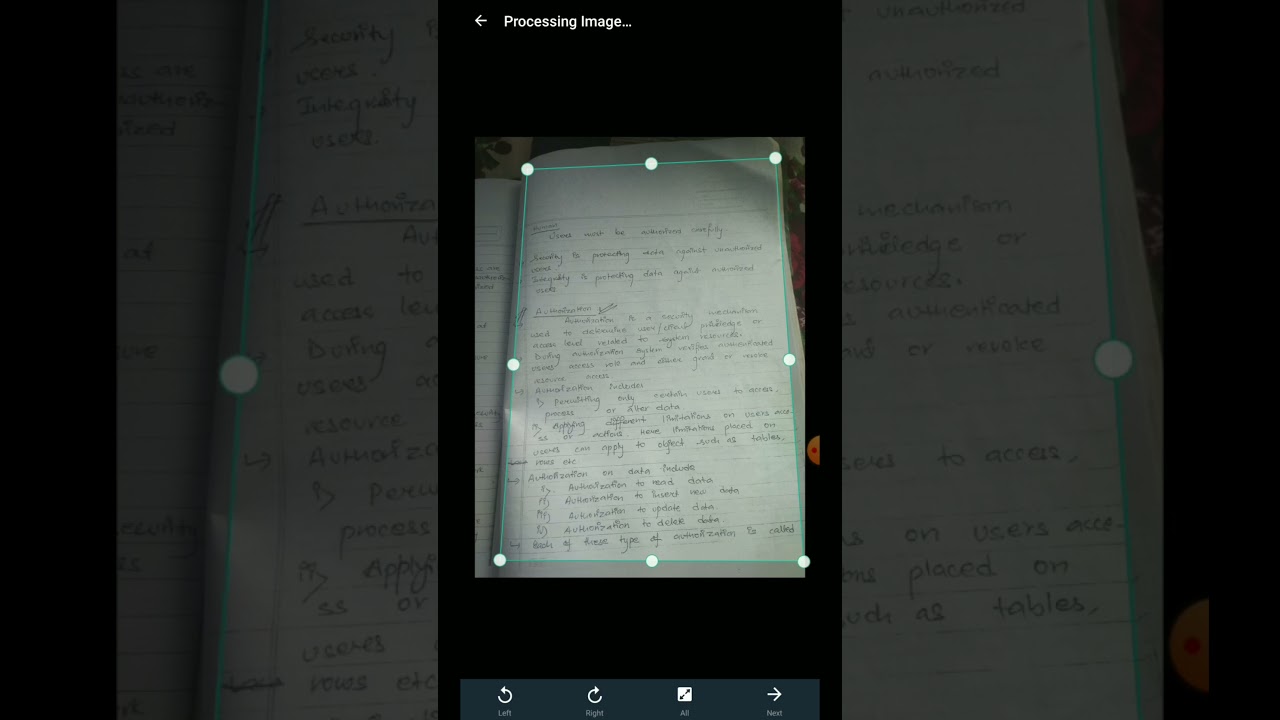 Processing Image...
Users must be authorized carefully.
Security is protecting data against unauthorized
users
Integrity is protecting data against authorized
users
Authorization
Authorization is a security mechanism
used to determine user/client privilege or
access level related to system resources.
During authorization system verifies authenticated
users access role and either grand or revoke
resource access.
Authorization includes
i) Permitting only certain users to access,
process or alter data.
ii) Applying different limitations on users acce-
ss or actions. Here limitations placed on
users can apply to object such as tables,
rows etc.
Authorization on data include
i) Authorization to read data
ii) Authorization to insert new data
iii) Authorization to update data
iv) Authorization to delete data.
Each of these type of authorization is called
Left
Right
All
Next